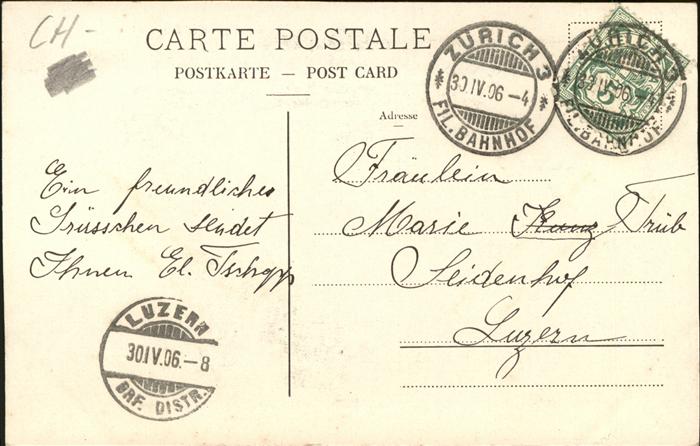 CH-
CARTE POSTALE
POSTKARTE — POST CARD
Adresse
ZÜRICH 3
30 IV.06 -4
FIL. BAHNHOF
ZÜRICH 3
30 IV.06 -4
FIL. BAHNHOF
5
Ein freundliches
Grüsschen sendet
Ihnen El. Tschopp
Fräulein
Marie Kunz Trüb
Seidenhof
Luzern
LUZERN
30 IV.06.-8
BRF. DISTR.